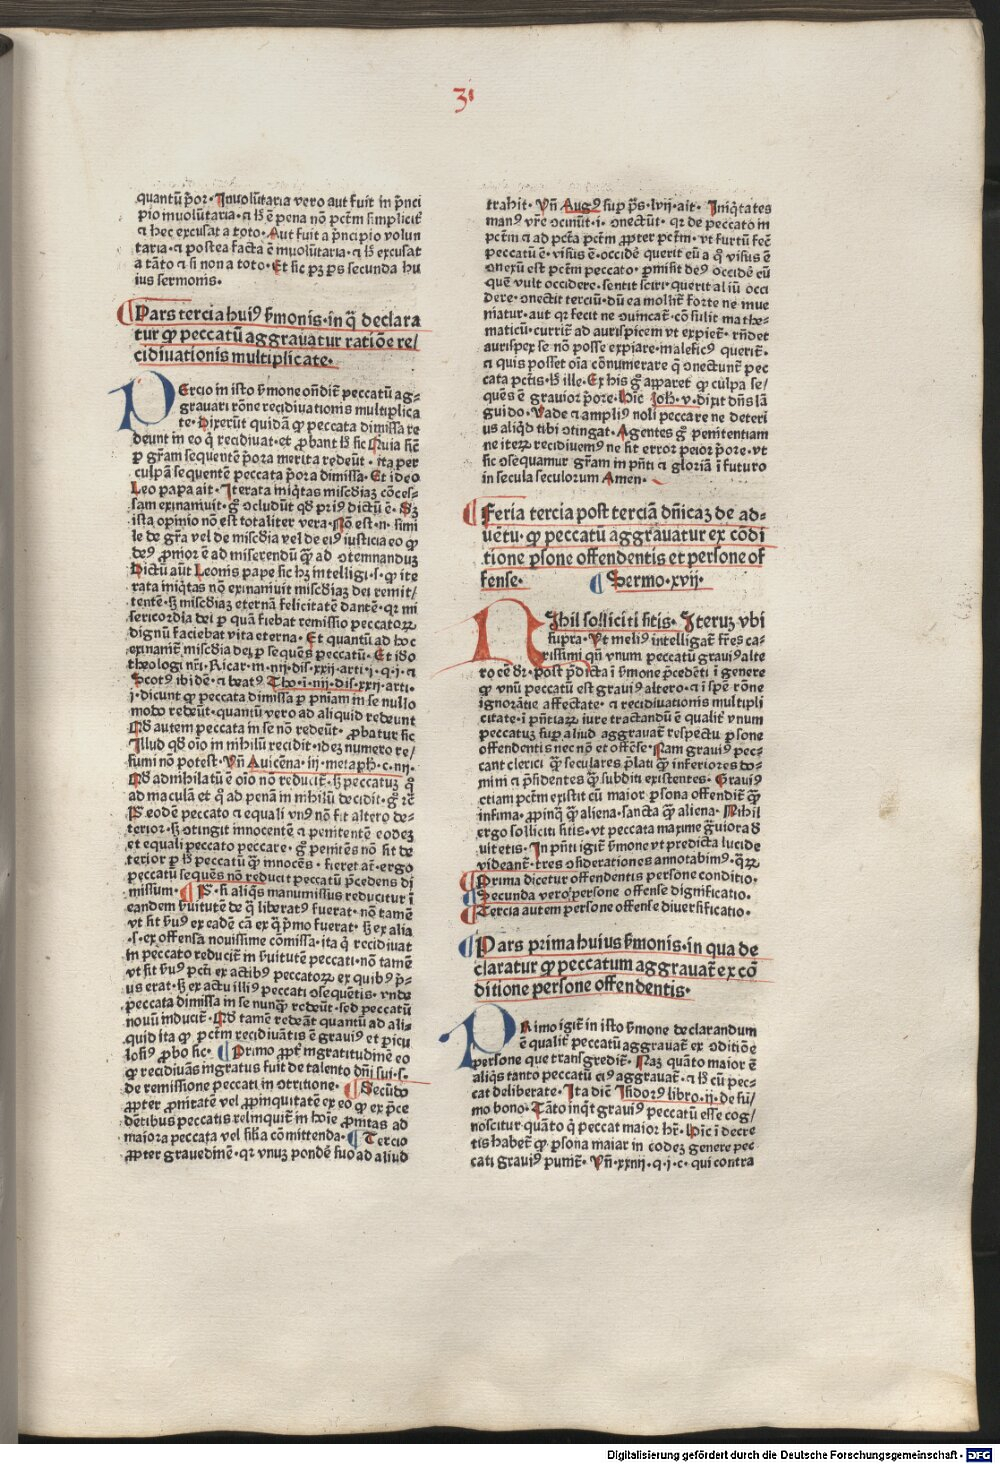 31
quantũ p̄or. Inuolũtaria vero aut fuit in p̄nci
pio inuolũtaria. ⁊ lꝫ ē pena nõ pctm̄ simplicit̄
⁊ hec excusat a toto. Aut fuit a p̄ncipio volun
taria. ⁊ postea facta ē inuolũtaria. ⁊ lꝫ excusat
a tãto ⁊ si non a toto. Et sic pꝫ ps secunda hu
ius sermonis.
Pars tercia huiꝰ s̄monis. in q̄ declara
tur ꝙ peccatũ aggrauatur ratiõe re/
cidiuationis multiplicate.
Ercio in isto s̄mone oñdit̄ peccatũ ag-
grauari rõne recidiuationis multiplica
te. Dixerũt quidã ꝙ peccata dimissa re
deunt in eo q̄ recidiuat. et ꝓbant lꝫ sic Quia sic̄
ꝑ gr̄am sequentē p̄ora merita redeũt. ita per
culpã sequentē peccata p̄ora dimissa. Et ideo
Leo papa ait. Iterata iniq̄tas misc̄diaꝫ cõces-
sam exinaniuit. gͦ ɔcludũt qð priꝰ dictũ ē. Sꝫ
ista opinio nõ est totaliter vera. Nõ est .n. simi
le de gr̄a vel de misc̄dia vel de eiꝰ iusticia eo ꝙ
deꝰ ꝓnior ē ad miserendũ q̄ꝫ ad ɔtemnanduꝫ
Dictũ aũt Leonis pape sic hꝫ intelligi .s. ꝙ ite
rata iniq̄tas nõ exinaniuit misc̄diaꝫ dei remit/
tentē. sꝫ misc̄diaꝫ eternã felicitatē dantē. qꝛ mi
sericordia dei ꝑ quã fiebat remissio peccatoꝝ
dignũ faciebat vita eterna. Et quantũ ad hoc
exinanit̄ misc̄dia dei ꝑ seq̄uens peccatũ. Et iðo
theologi nr̄i. Ricar. in .iiij. dis. xxij. arti. i. q. i. ⁊
Scotꝰ ibidē. ⁊ beatꝰ Tho. i. iiij. dis. xxij. arti.
i. dicunt ꝙ peccata dimissa ꝑ pniam in se nullo
modo redeũt. quantũ vero ad aliquid redeunt
Qð autem peccata in se nõ redeũt. ꝓbatur sic
Illud qð oīo in nihilũ recidit. ideꝫ numero re/
sumi nõ potest. Vñ Auicēna. iij. metaph. c. iiij.
Qð adnihilatũ ē oīo nõ reducit̄. sꝫ peccatuꝫ qͦ
ad maculã et qͦ ad penã in nihilũ decidit. gͦ rē
P̄s eodē peccato ⁊ equali vnꝰ nõ fit altero de-
terior. sꝫ ɔtingit innocentē ⁊ penitentē eodeꝫ
et equali peccato peccare. gͦ penitēs nõ fit de
terior ꝑ lꝫ peccatũ q̄ꝫ innocēs. fieret at̄. ergo
peccatũ seq̄uēs nõ reducit peccatũ p̄cedens di
missum. P̄s. si aliq̄s manumissus reducitur ī
eandem s̄uitutē de q̄ liberatꝰ fuerat. nõ tamē
vt sit s̄uꝰ ex cadē cã ex q̄ pͥmo fuerat. sꝫ ex alia
.s. ex offensa nouissime cõmissa. ita qͥ recidiuat
in peccato reducit̄ in s̄uitutē peccati. nõ tamē
vt sit s̄uꝰ pcti ex actibꝰ peccatoꝝ ex quibꝰ pͥ-
us erat. sꝫ ex actu illiꝰ peccati ɔsequētis. vnde
peccata dimissa in se nunq̄ꝫ redeũt. sed peccatũ
nouũ inducit̄. Qð tamē redeãt quantũ ad ali-
quid ita ꝙ pctm̄ recidiuãtis ē grauiꝰ et picu
losiꝰ ꝓbo sic. Primo ꝓpt̄ ingratitudinē eo
ꝙ recidiuãs ingratus fuit de talento dñi sui .s.
de remissione peccati in ɔtritione. Secũdo
ꝓpter ꝓnitatē vel ꝓpinquitatē ex eo ꝙ ex p̄ce
dētibus peccatis relinquit̄ in hoīe ꝓnitas ad
maiora peccata vel siĺia cõmittenda. Tercio
ꝓpter grauedinē. qꝛ vnuꝫ pondē suo ad aliud
trahit. Vñ Augꝰ sup ps. lvij. ait. Iniq̄tates
manꝰ vr̄e ɔcinũt .i. ɔnectũt. qꝛ de peccato in
pctm̄ ⁊ ad pctã pctm̄ ꝓpter pctm̄. vt furtũ fecē
peccatũ ē. visus ē. occidē querit eũ a qͦ visus ē
ɔnexũ est pctm̄ peccato. pͥmisit deꝰ occidē eũ
quē vult occidere. sentit sciri. querit aliũ occi
dere. ɔnectit terciũ. dũ ea molit̄ forte ne inue
niatur. aut qꝛ fecit ne ɔuincat̄. cõsulit mathe-
maticũ. currit̄ ad aurispicem vt expiet̄. rñdet
aurispex se nõ posse expiare. maleficꝰ querit̄.
⁊ quis posset oīa cõnumerare q̄ ɔnectunt̄ pec
cata pctis. lꝫ ille. Ex his gͦ apparet ꝙ culpa se/
quēs ē grauior pͥore. Hic Joh̄. v. dixit dñs lã
guido. Vade ⁊ ampliꝰ noli peccare ne deteri
us aliqð tibi ɔtingat. Agentes gͦ penitentiam
ne iteꝝ recidiuemꝰ ne fit error peior pͥore. vt
sic ɔsequamur gr̄am in pn̄ti ⁊ gloriã ī futuro
in secula seculorum Amen.
Feria tercia post terciã dñicaꝫ de ad-
uētu. ꝙ peccatũ aggrauatur ex cõdi
tione ꝑsone offendentis et persone of
fense. Sermo. xvij.
Ihil solliciti sitis. Iteruꝫ vbi
supra. Vt meliꝰ intelligat̄ fr̄es ca-
rissimi qñ vnum peccatũ grauiꝰ alte
ro cē ðꝛ. post p̄dicta ī s̄mone p̄cedēti ī genere
ꝙ vnũ peccatũ est grauiꝰ altero. ⁊ ī spē rõne
ignorãtie affectate. ⁊ recidiuationis multipli
citate. ī pñtiaꝝ iure tractandũ ē qualit̄ vnum
peccatuꝫ suꝑ aliud aggrauat̄ respectu ꝑsone
offendentis nec nõ et offēse. Nam grauiꝰ pec-
cant clerici q̄ꝫ seculares. p̄lati q̄ꝫ inferiores. do-
mini ⁊ p̄sidentes q̄ꝫ subditi existentes. Grauiꝰ
etiam pctm̄ existit cũ maior ꝑsona offendit̄ q̄ꝫ
infima. ꝓpinq̄ q̄ꝫ aliena. sancta q̄ꝫ aliena. Nihil
ergo solliciti sitis. vt peccata maxime grauiora ð
uitetis. In pñti igit̄ s̄mone vt predicta lucide
videant̄. tres ɔsiderationes annotabimꝰ. q̄ꝝ
Prima dicetur offendentis persone conditio.
Secunda vero persone offense dignificatio.
Tercia autem persone offense diuersificatio.
Pars prima huius s̄monis. in qua de
claratur ꝙ peccatum aggrauat̄ ex cõ
ditione persone offendentis.
Rimo igit̄ in isto s̄mone declarandum
ē qualit̄ peccatũ aggrauat̄ ex ɔditiõe
persone que transgredit̄. Naꝫ quãto maior ē
aliq̄s tanto peccatũ eiꝰ aggrauat̄. ⁊ lꝫ cũ pec-
cat deliberate. Ita dicīt Isidorꝰ libro. ij. de sũ/
mo bono. Tãto inq̄t grauiꝰ peccatũ esse cog/
noscitur. quãto qͥ peccat maior hr̄. Hic ī decre
tis habet̄ ꝙ ꝑsona maiar in eodeꝫ genere pec
cati grauiꝰ punit̄. Vñ. xxiiij. q. i. c. qui contra
Digitalisierung gefördert durch die Deutsche Forschungsgemeinschaft - DFG